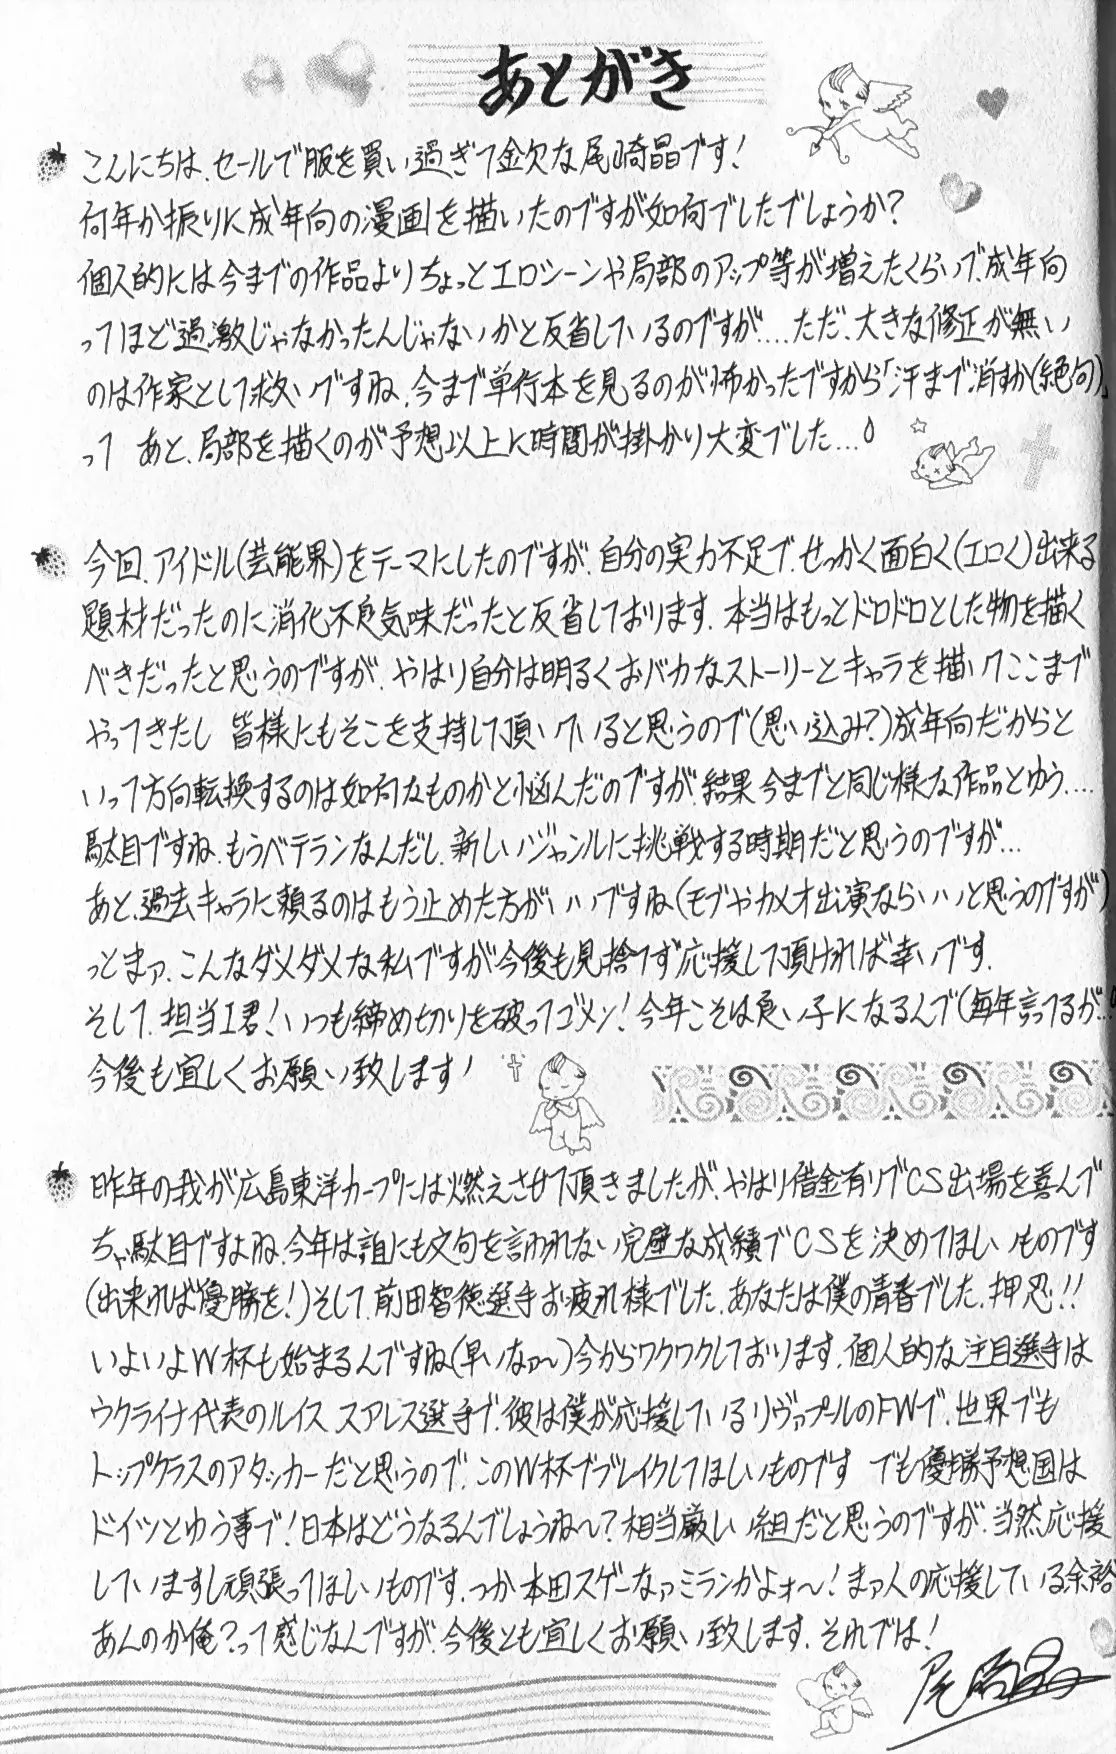 あとがき
こんにちは、セールで服を買い過ぎて金欠な尾崎晶です!
何年か振りに成年向の漫画を描いたのですが如何でしたでしょうか?
個人的には今までの作品よりちょっとエロシーンや局部のアップ等が増えたくらいで、成年向
ってほど過激じゃなかったんじゃないかと反省しているのですが....ただ、大きな修正が無い
のは作家として救いですね、今まで単行本を見るのが怖かったですから「汗まで消すか(絶句)」
って あと、局部を描くのが予想以上に時間が掛かり大変でした...
今回、アイドル(芸能界)をテーマにしたのですが、自分の実力不足で、せっかく面白く(エロく)出来る
題材だったのに消化不良気味だったと反省しております、本当はもっとドロドロとした物を描く
べきだったと思うのですが、やはり自分は明るくおバカなストーリーとキャラを描いてここまで
やってきたし 皆様にもそこを支持して頂いていると思うので(思い込み?)成年向だからと
いって方向転換するのは如何なものかと悩んだのですが、結果今までと同じ様な作品とゆう....
駄目ですね、もうベテランなんだし、新しいジャンルに挑戦する時期だと思うのですが...
あと、過去キャラに頼るのはもう止めた方がいいですね(モブやカメオ出演ならいいと思うのですが)
っとまァ、こんなダメダメな私ですが今後も見捨てず応援して頂ければ幸いです、
そして、担当I君!いつも締め切りを破ってゴメン!今年こそは良い子になるんで(毎年言ってるが...)
今後も宜しくお願い致します!
昨年の我が広島東洋カープには燃えさせて頂きましたが、やはり借金有りでCS出場を喜んで
ちゃ駄目ですよね、今年は誰にも文句を言われない完璧な成績でCSを決めてほしいものです
(出来れば優勝を!)そして、前田智徳選手お疲れ様でした、あなたは僕の青春でした、押忍!!
いよいよW杯も始まるんですね(早いなァ〜)今からワクワクしております、個人的な注目選手は
ウクライナ代表のルイス スアレス選手で、彼は僕が応援しているリヴァプールのFWで、世界でも
トップクラスのアタッカーだと思うので、このW杯でブレイクしてほしいものです でも優勝予想国は
ドイツとゆう事で!日本はどうなるんでしょうね〜?相当厳しい組だと思うのですが、当然応援
していますし頑張ってほしいものです、つか本田スゲーなァミランかよォ〜!まァ人の応援している余裕
あんのか俺?って感じなんですが、今後とも宜しくお願い致します、それでは!
尾崎晶